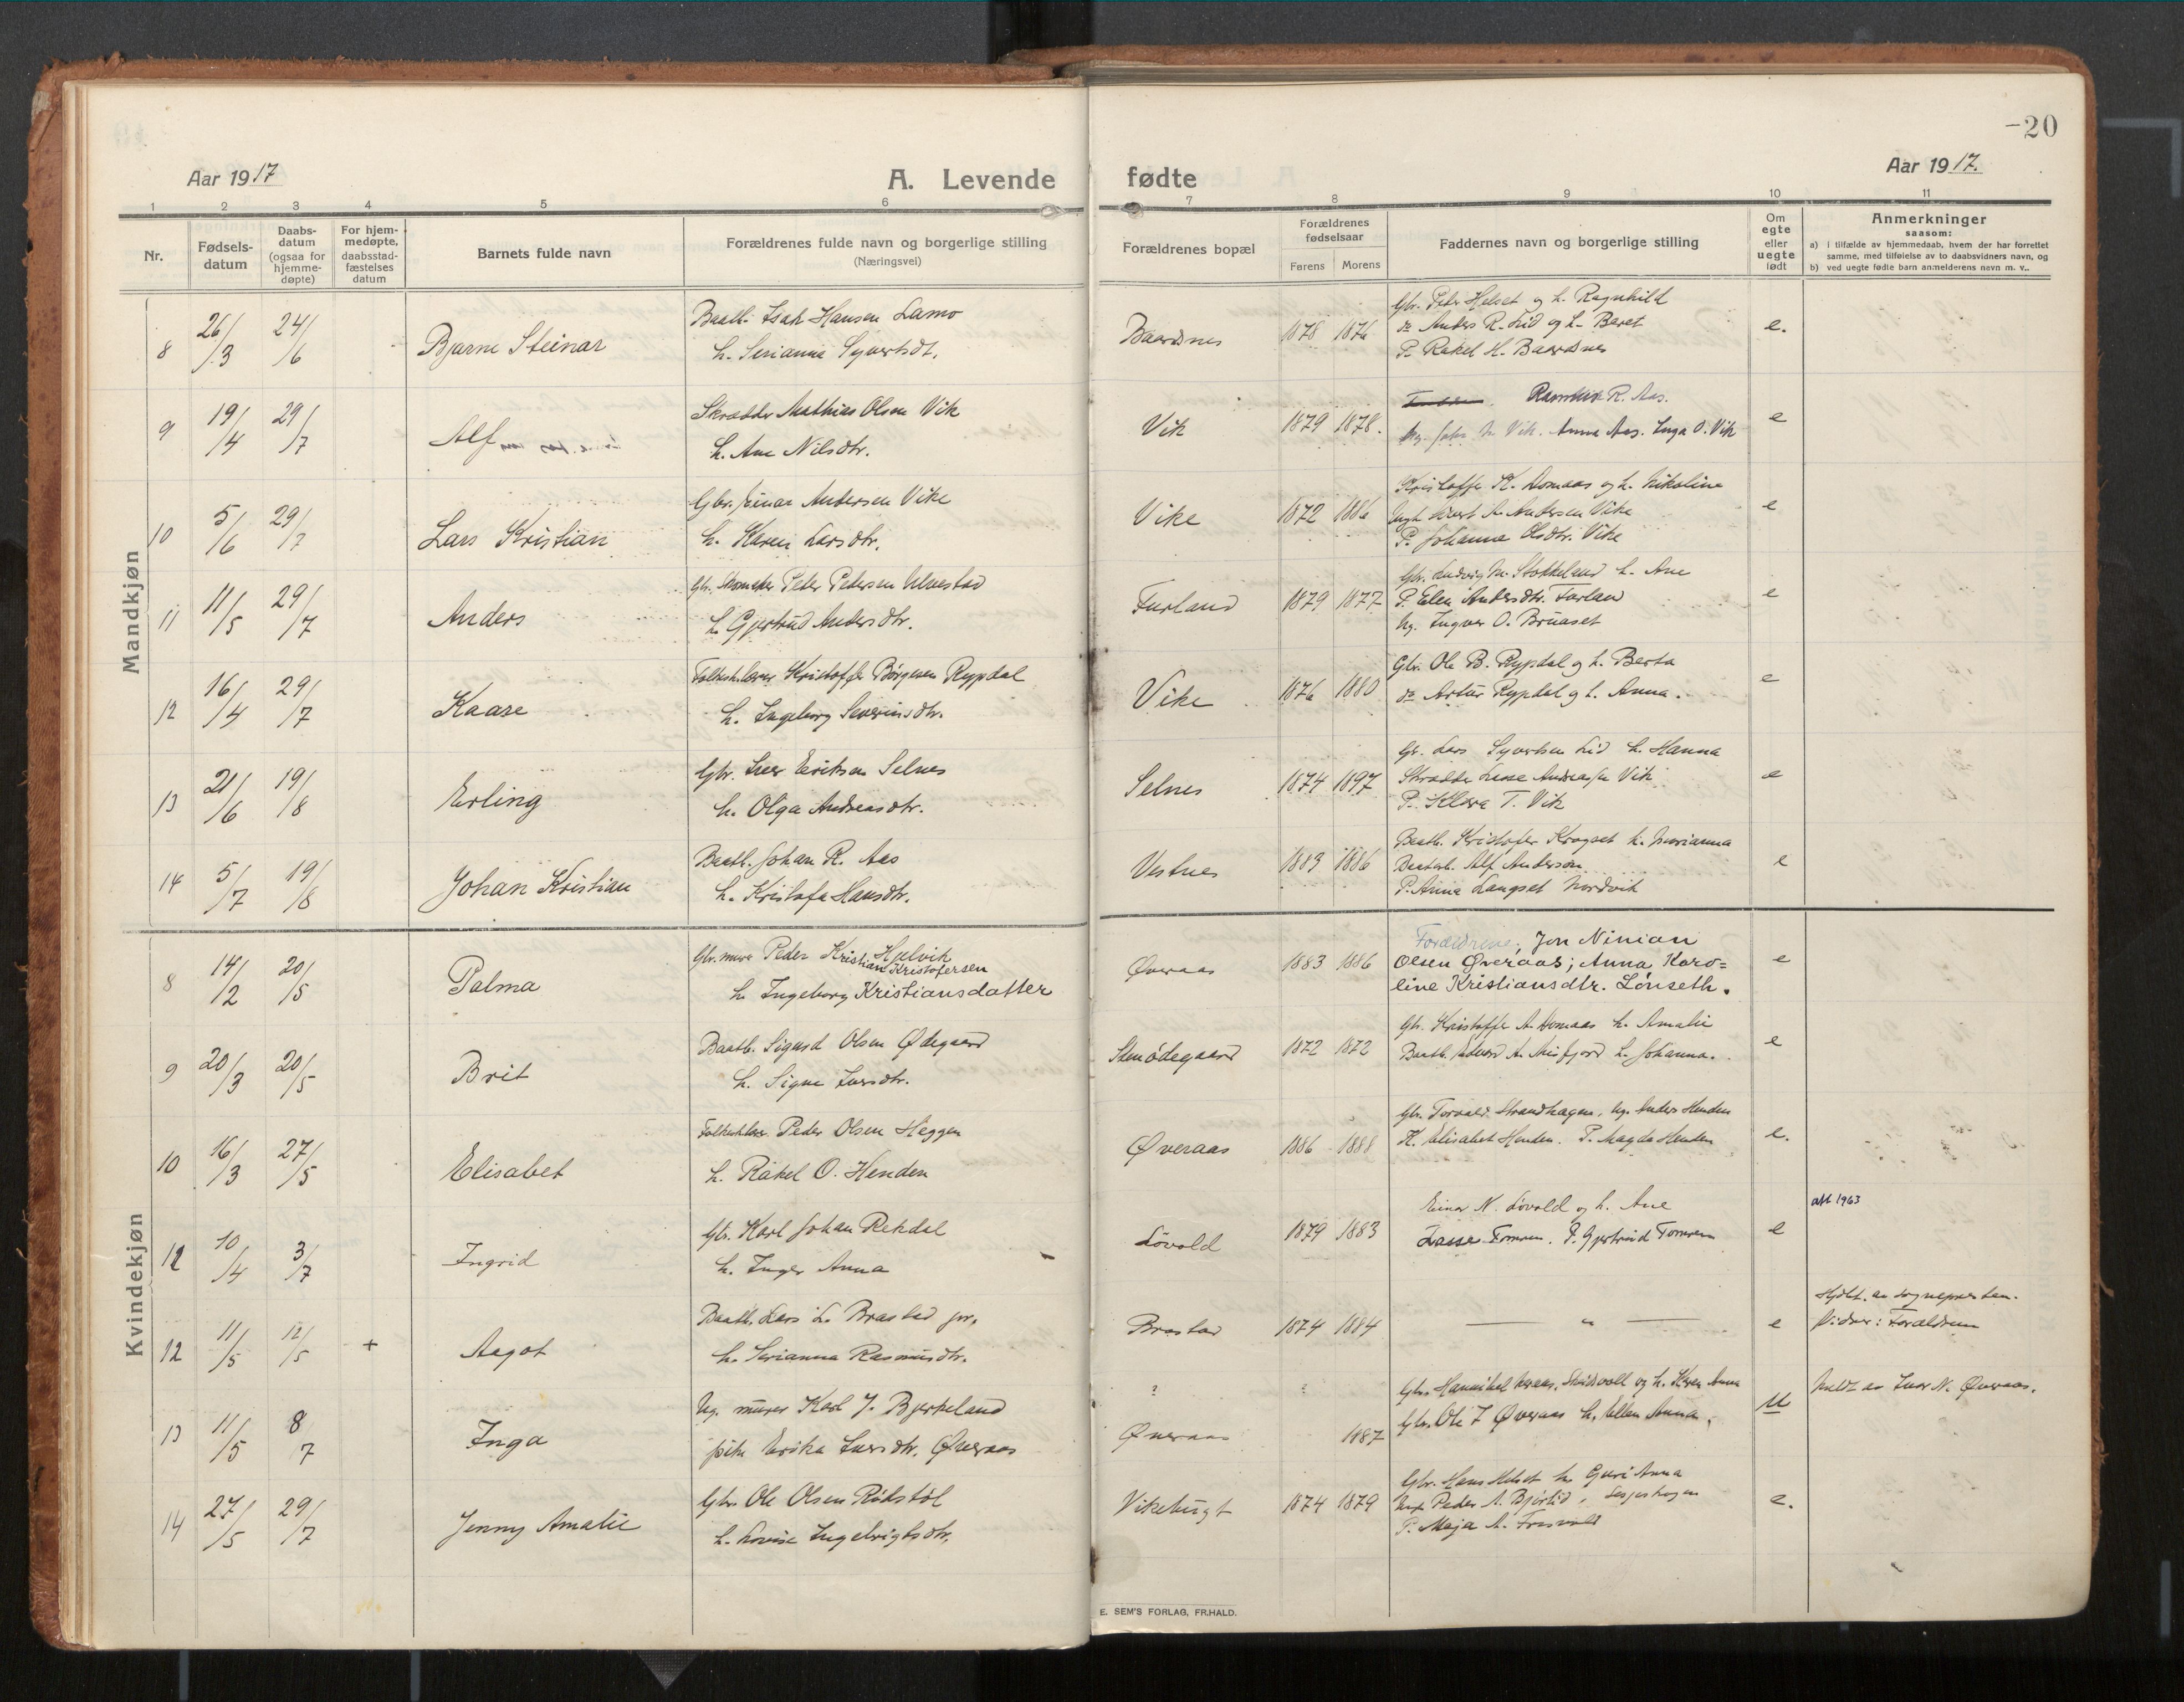 -20
Aar 1917
A. Levende fødte
Aar 1917.
1 2 3 4 5 6 7 8 9 10 11
Nr.
Fødsels-
datum
Daabs-
datum
(ogsaa for
hjemme-
døpte)
For hjem-
medøpte,
daabsstad-
fæstelses
datum
Barnets fulde navn
Forældrenes fulde navn og borgerlige stilling
(Næringsvei)
Forældrenes bopæl
Forældrenes
fødselsaar
Farens Morens
Faddernes navn og borgerlige stilling
Om
egte
eller
uegte
født
Anmerkninger
saasom:
a) i tilfælde av hjemmedaab, hvem der har forrettet
samme, med tilføielse av to daabsvidners navn, og
b) ved uegte fødte barn anmelderens navn m. v..
Mandkjøn
8 26/3 24/6 Bjarne Steinar
Baatb. Isak Hansen Lamo
h. Serianna Syvertsdt.
Baardsnes 1878 1876
Gbr. Peder Helset og h. Ragnhild
do Anders R. Lid og h. Beret
P. Rakel H. Baardsnes
e.
9 19/4 29/7 Alf
Skrædder Mathias Olsen Vik
h. Ane Nilsdtr.
Vik 1879 1878.
R. Aas.
Vik. Anna Aas. Inga O. Vik
e
10 5/6 29/7 Lars Kristian
Gbr. Einar Andersen Vike
h. Karen Larsdtr.
Vike 1872 1886
Kristoffer K. Aomaas og h. Nikolina
Andersen Vike
P. Johanna Olsdtr. Vike
e
11 11/5 29/7 Anders
Gbr. Skomaker Peter Pedersen Ulvestad
h. Gjertrud Andersdtr.
Furland 1879 1877
Gbr. Ludvig M. Stokkeland h. Ane
P. Elen Andersdtr. Furland
Ug. Ingver O. Bruaset
e
12 16/4 29/7 Kaare
Kristoffer Børgesen Rypdal
h. Ingeborg Severinsdtr.
Vike 1876 1880
Gbr. Ole B. Rypdal og h. Berta
do Artur Rypdal og h. Anna.
e
13 21/6 19/8 Erling
Gbr. Iver Eriksen Selnes
h. Olga Andreasdtr.
Selnes 1874 1897
Gb. Lars Syvertsen Lid h. Hanna
Skrædder Lasse Vik
P. Klara T. Vik
e
14 5/7 19/8 Johan Kristian
Baatb. Johan R. Aas
h. Kristofa Hansdtr.
Vestnes 1883 1886
Baatb. Kristofer Kragset h. Marianna
Baatb. Alf Anderson
P. Anna Langset Nordvik
e
Kvindekjøn
8 14/2 20/5 Palma
Gbr. murer Peder Kristian Hjelvik
Kristofersen
h. Ingeborg Kristiansdatter
Øveraas 1883 1886
Forældrene; Jon Ninian
Olsen Øveraas; Anna Karo=
line Kristiansdtr. Lönseth.
e
9 20/3 20/5 Brit
Baatb. Sigurd Olsen Ødegaard
h. Signe Iversdtr.
Stenødegaard 1872 1872
Gbr. Kristoffer A. Aomaas h. Amalie
Baatb. Edvard A. Misfjord h. Johanna.
e
10 16/3 27/5 Elisabet
Peder Olsen Heggen
h. Rakel O. Henden
Øveraas 1886 1888
Gbr. Torvald Strandhagen, Ug. Anders Henden
K. Elisabet Henden. P. Magda Henden
e.
12 10/4 3/7 Ingrid
Gbr. Karl Johan Rekdal
h. Inger Anna
Lövold 1879 1883
Einar N. Lövold og h. Ane
Lasse Tomren. P. Gjertrud Tomren
e
att 1963
12 11/5 12/5 + Aagot
Baatb. Lars L. Brastad jr.
h. Serianna Rasmusdtr.
Brastad 1874 1884
— " —
e
Hjdbt. av sognepresten.
Vidner: Forældrene
13 11/5 8/7 Inga
Ug. murer Karl J. Bjerkeland
pike Erika Iversdtr. Øveraas
?
Øveraas 1887
Gbr. Hannibal Skeidsvoll og h. Karen Anna
Gbr. Ole I Øveraas h. Ellen Anna.
U
meldt av Iver N. Øveraas.
14 27/5 29/7 Jenny Amalie
Gbr. Ole Olsen Rødstöl
h. Lovise Ingebrigtsdtr.
Vikebugt 1874 1879
Gbr. Hans Helset h. Guri Anna
Peder A. Bjørlid, Lesjeskogen
P. Maja A. Frisvold
e.
E. SEM'S FORLAG, FR.HALD.